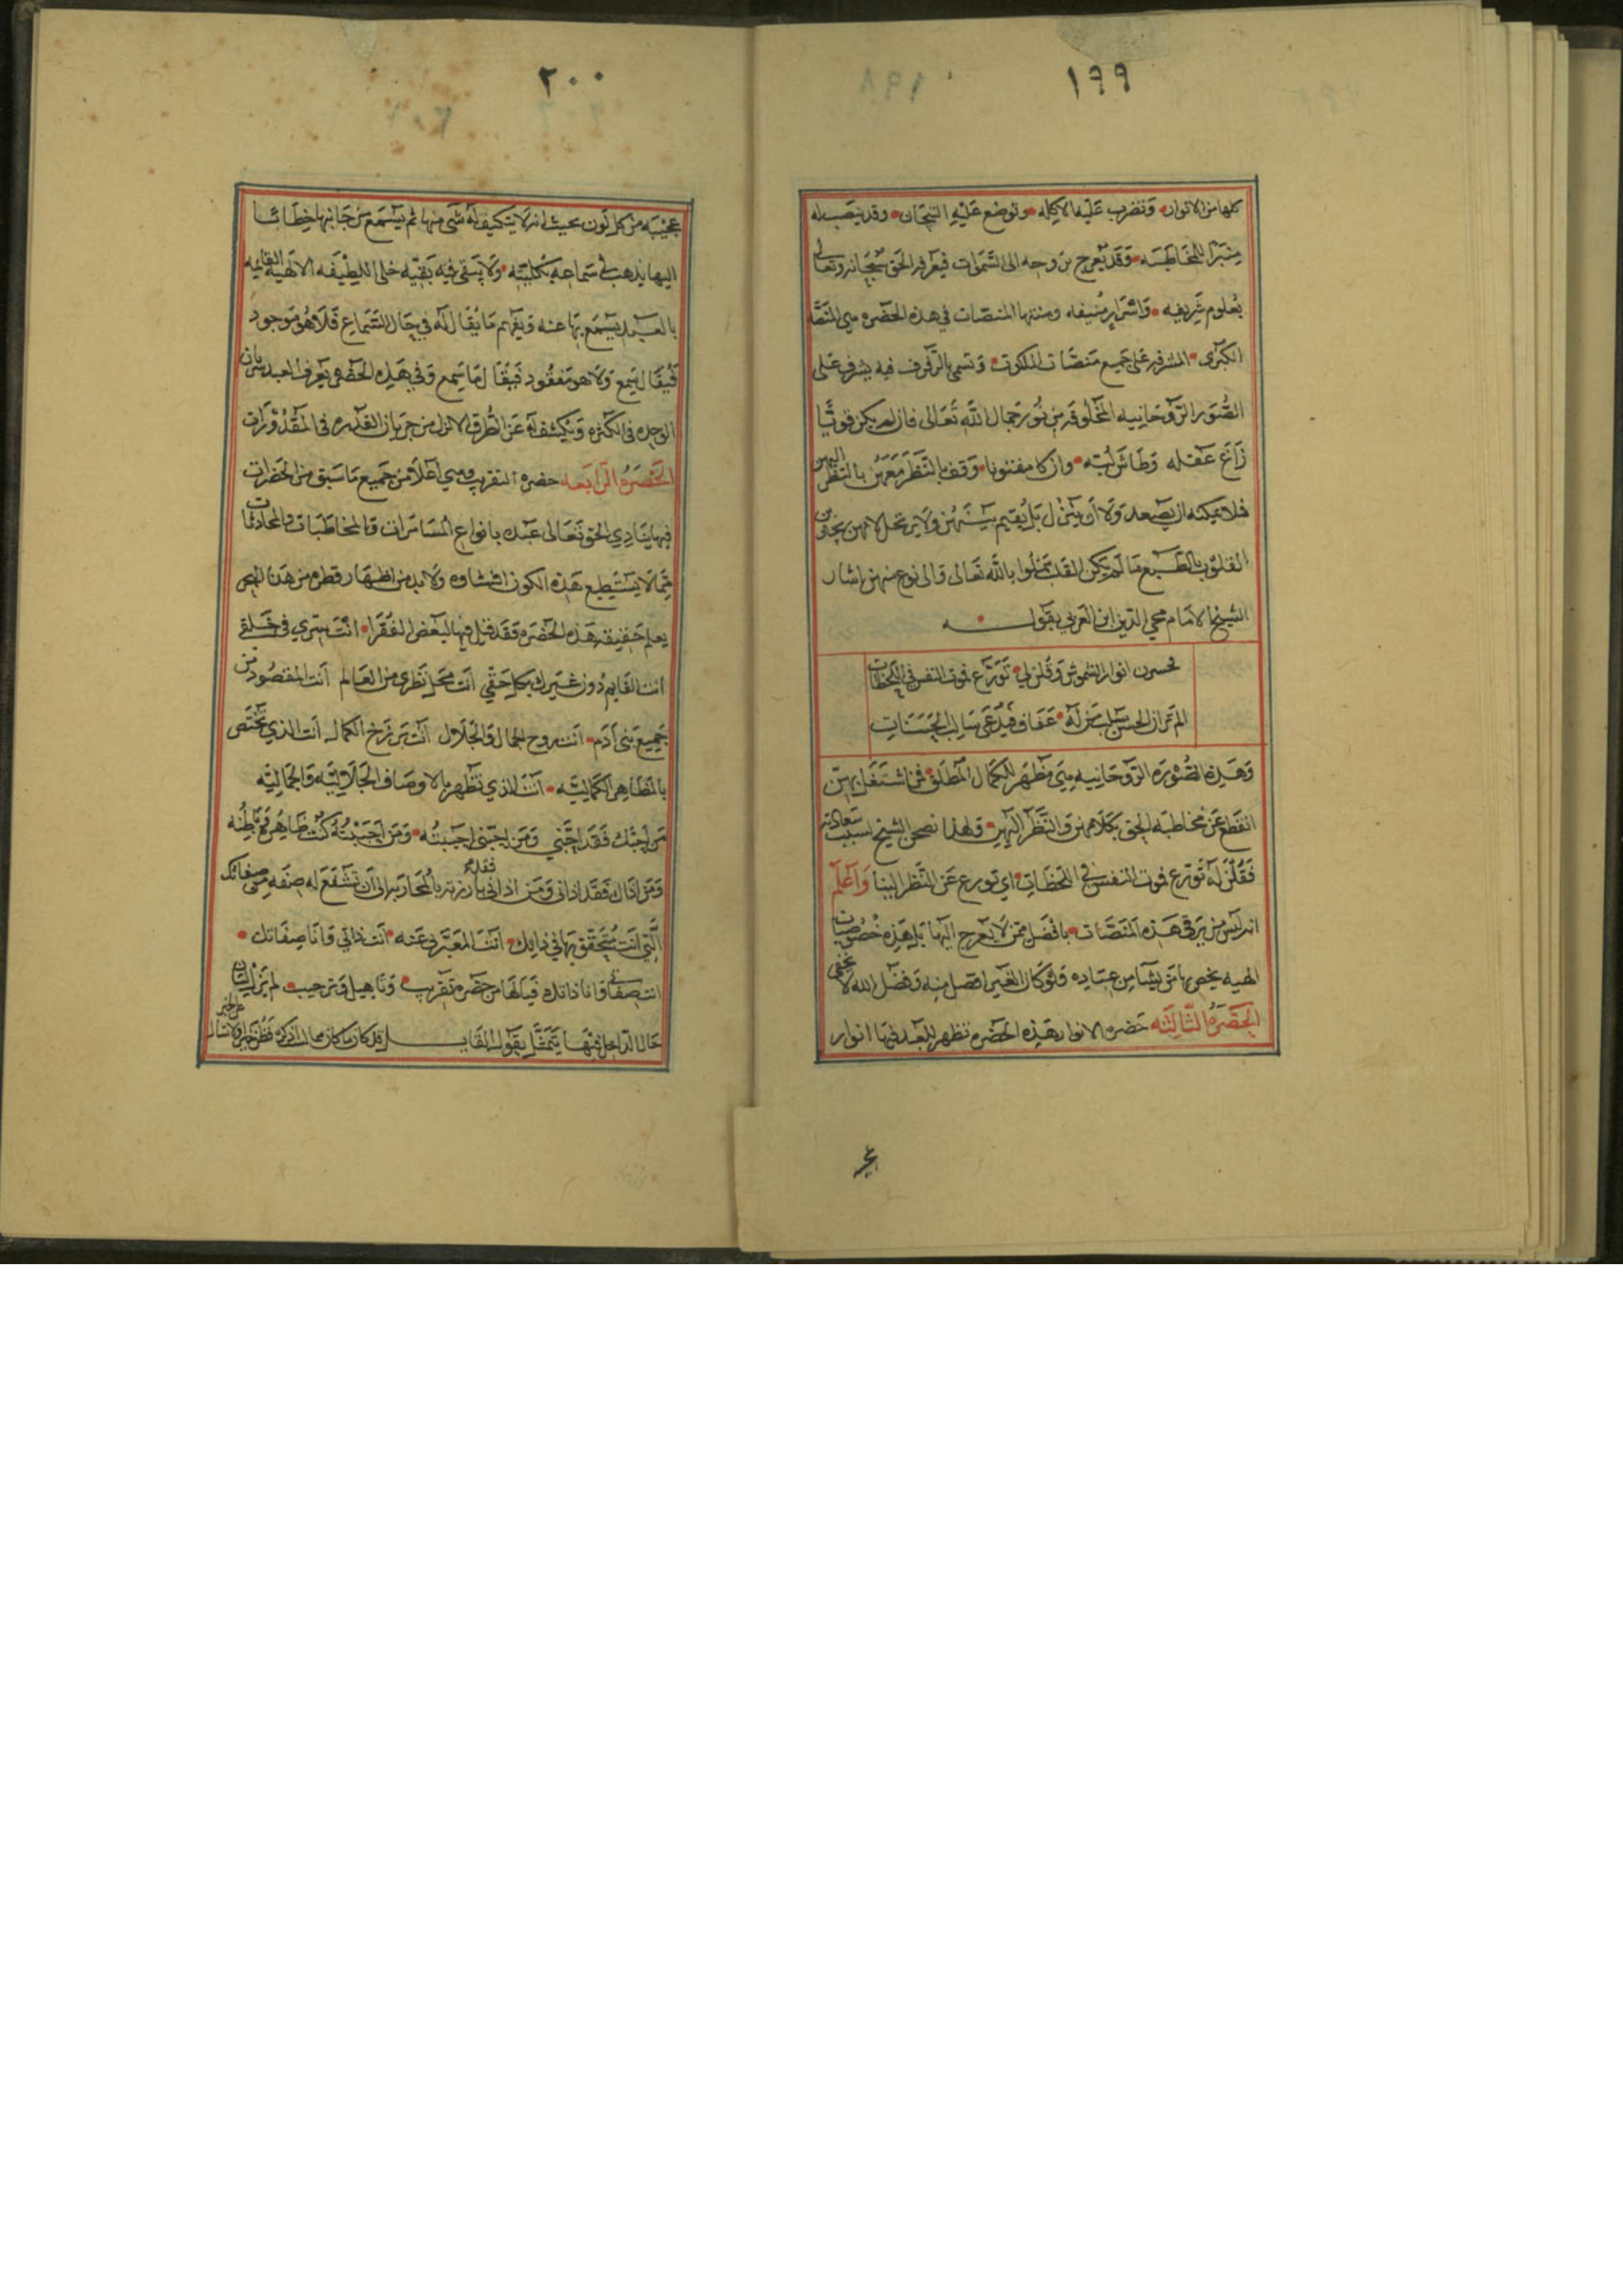 ١٩٩
كلها من الانوار وتضرب عليه الاكليله وتوضع عليه التيجان وقد ينصب له
منبرا للمخاطبه وقد يعرج بروحه الى السموات فيعرفه الحق سبحانه وتعالى
بعلوم شريفه واسرار منيفه ومنتهى المنصات في هذه الحضره هي المنصه
الكبرى المشرفه على جميع منصات الملكوت وتسمى بالرفرف فيه يشرف على
الصور الروحانيه المخلوقه من نور جمال الله تعالى فان لم يكن قويا
زاغ عقله وطاش لبه وان كا مفتونا وقف بالنظر معهن بالنظر اليهن
فلا يمكنه ان يصعد ولا ان ينزل بل يقيم بينهن ولا يرتحل لانهن
القلوب بالطبع ما لم يكن القلب بالله تعالى والى نوع منهن اشار
الشيخ الامام محي الدين ابن العربي بقوله
انوار الشموس وقلن لي تورع فموت النفس في اللحظات
الم تر ان الحسن يسلب من له عفاف فيدعى سالب الحسنات
وهذه الصوره الروحانيه هي مظهر للكمال المطلق فمن اشتغل بهن
انقطع عن مخاطبه الحق بكلامهن والنظر اليهن ولهذا نصحن الشيخ لسبب سعادته
فقلن له تورع فموت النفس في اللحظات اي تورع عن النظر الينا واعلم
انه ليس من يرقى هذه المنصات بافضل ممن لا يعرج اليها بل هذه خصوصيات
الهيه يخص بها من يشا من عباده ولو كان الغير افضل منه وفضل الله لا يخفى
الحضرة الثالثه حضره الانوار بهذه الحضره تظهر للعبد فيها انوار
٢٠٠
عجيبه من كل لون بحيث انه لا يتكيف له شى منها ثم يسمع من جانبها خطابا
اليها يذهب في سماعه بكليته ولا يبقى فيه بقيه خلى اللطيفه الالهيه القايمه
بالعبد يسمع بها عنه ويفهم ما يقال له في حال السماع فلا هو موجود
فيقال سمع ولا هو مفقود فيقال ما سمع وفي هذه الحضره يعرف العبد سريان
الوحده في الكثره وينكشف له عن الطرق الاول من جريان القدره في المقدورات
الحضرة الرابعه حضره التقريب وهي اعلا من جميع ما سبق من الحضرات
فيها ينادي الحق تعالى عبده بانواع المسامرات والمخاطبات والمحادثات
مما لا يستطيع هذه الكون افشاوه ولا بد من اظهار قطره من هذا البحر
يعلم حقيقه هذه الحضره فقد قيل فيها لبعض الفقرا انت سري في خلقي
انت القايم دون غيرك بكل حقي انت محل نظري من العالم انت المقصود من
جميع بني آدم انت روح الجمال والجلال انت برزخ الكمال انت الذي تختص
بالمظاهر الكماليه انت الذي تظهر بالاوصاف الجلاليه والجماليه
من احبك فقد احبني ومن احبني احببته ومن احببته كنت ظاهره وباطنه
ومن اذاك فقد اذاني ومن اذاني فقد بارزته بالمحاربه الى ان تشفع له صفه من صفاتك
التي انت متحقق بها في ذلك انت المعبر بي عنه انت ذاتي وانا صفاتك
انت صفاتي وانا ذاتك فيالها من حضره تقريب وتاهيل وترحيب لم يزل لسان
حال الداخل فيها يتمثل بقول القايل قد كان ما كان مما لست اذكره فظن خيرا ولا تسال عن الخبر